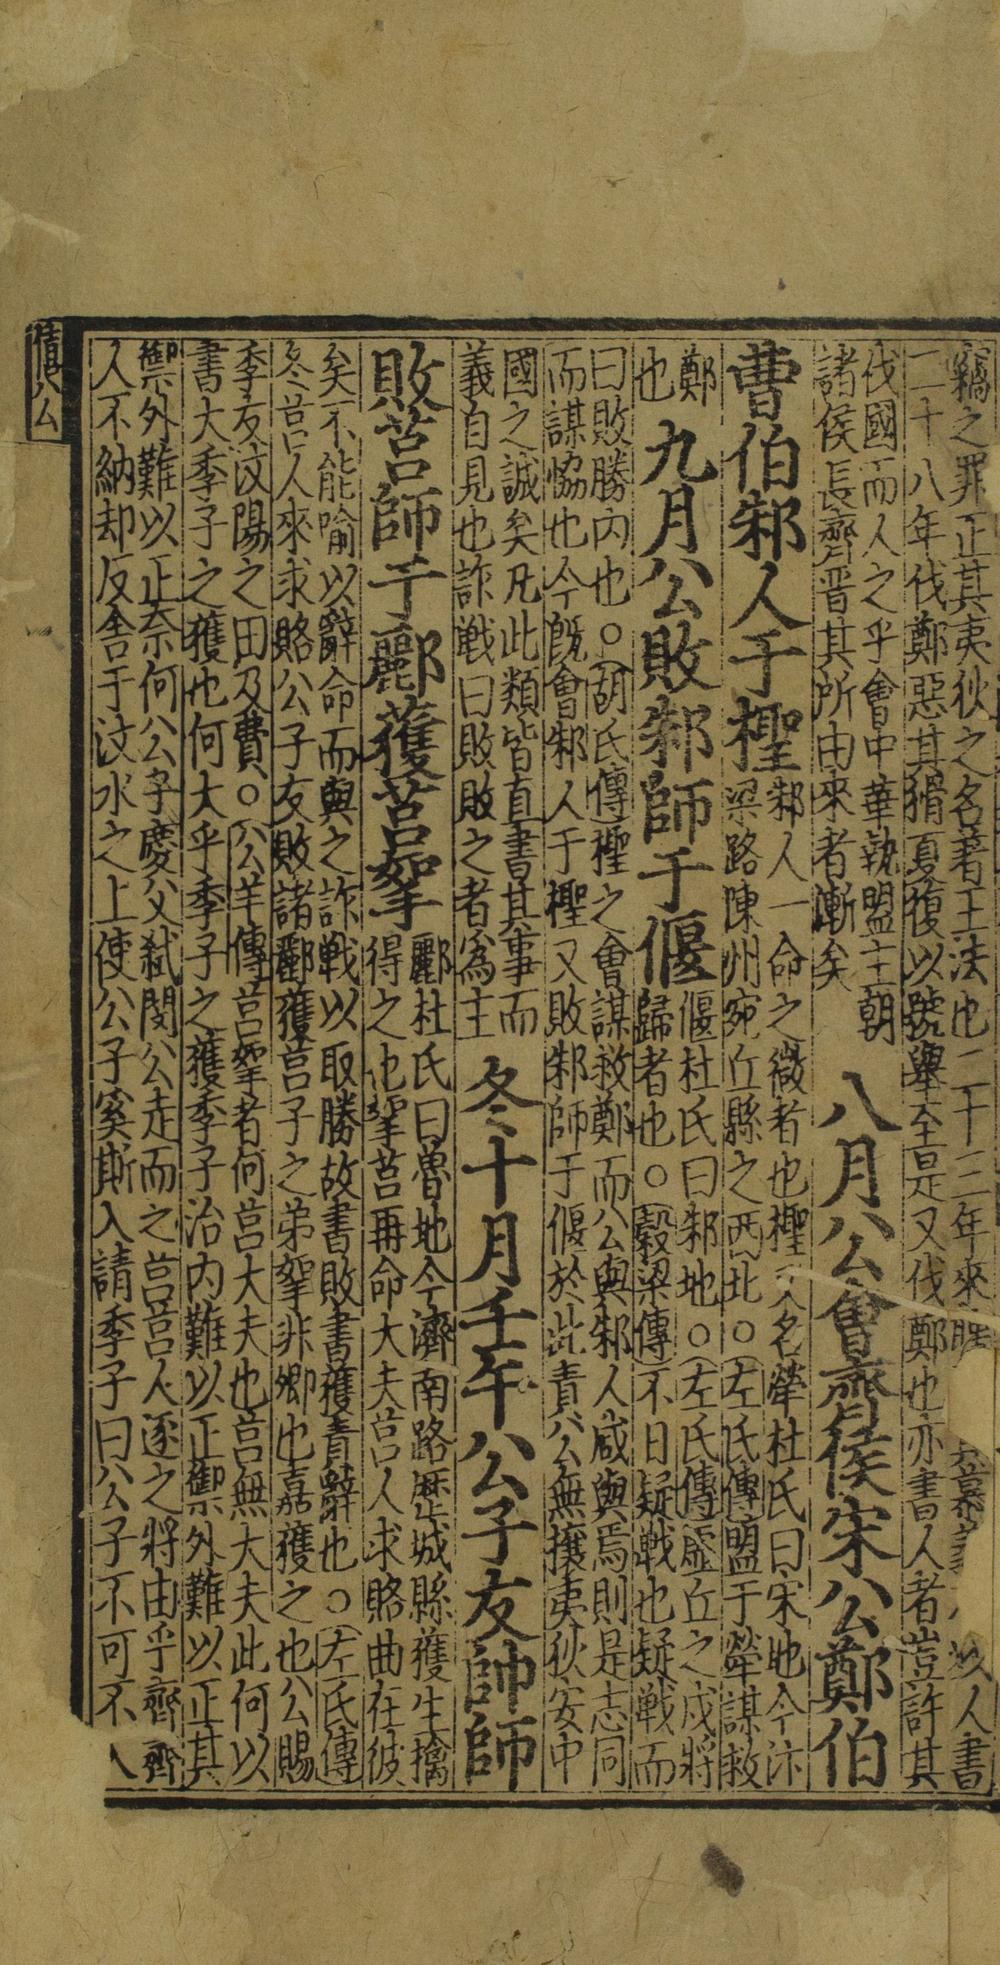 竊之罪正其夷狄之名著王法也二十三年來聘以人書
二十八年伐鄭惡其猾夏復以號舉至是又伐鄭也亦書人者豈許其
伐國而人之乎會中華執盟主朝
諸侯長齊晋其所由來者漸矣
八月公會齊侯宋公鄭伯
曹伯邾人于檉
邾人一命之微者也檉又名犖杜氏曰宋地今汴
梁路陳州宛丘縣之西北○左氏傳盟于犖謀救
鄭
也
九月公敗邾師于偃
偃杜氏曰邾地○左氏傳虛丘之戍將
歸者也○穀梁傳不日疑戰也疑戰而
曰敗勝內也○胡氏傳檉之會謀救鄭而公與邾人咸與焉則是志同
而謀恊也今旣會邾人于檉又敗邾師于偃於此責公無攘夷狄安中
國之誠矣凡此類皆直書其事而
義自見也詐戰曰敗敗之者爲主
冬十月壬午公子友帥師
敗莒師于酈獲莒挐
酈杜氏曰魯地今濟南路歷城縣獲生擒
得之也挐莒再命大夫莒人求賂曲在彼
矣不能喻以辭命而與之詐戰以取勝故書敗書獲責辭也○左氏傳
冬莒人來求賂公子友敗諸酈獲莒子之弟挐非卿也嘉獲之也公賜
季友汶陽之田及費○公羊傳莒挐者何莒大夫也莒無大夫此何以
書大季子之獲也何大乎季子之獲季子治內難以正禦外難以正其
禦外難以正奈何公子慶父弑閔公走而之莒莒人逐之將由乎齊齊
人不納却反舎于汶水之上使公子奚斯入請季子曰公子不可不入
僖公